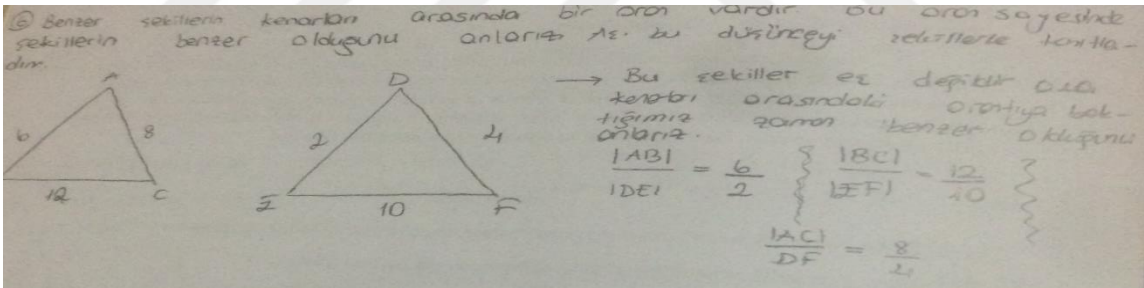 ⑥ Benzer şekillerin kenarları arasında bir oran vardır bu oran sayesinde
şekillerin benzer olduğunu anlarız Ali bu düşünceyi şekillerle kanıtla-
dım.
A
6
8
12
C
D
2
4
E
10
F
→ Bu şekiller eş değildir ama
kenarları arasındaki orantıya bak-
tığımız zaman benzer olduğunu
anlarız.
|AB| / |DE| = 6/2
|BC| / |EF| = 12/10
|AC| / DF = 8/4